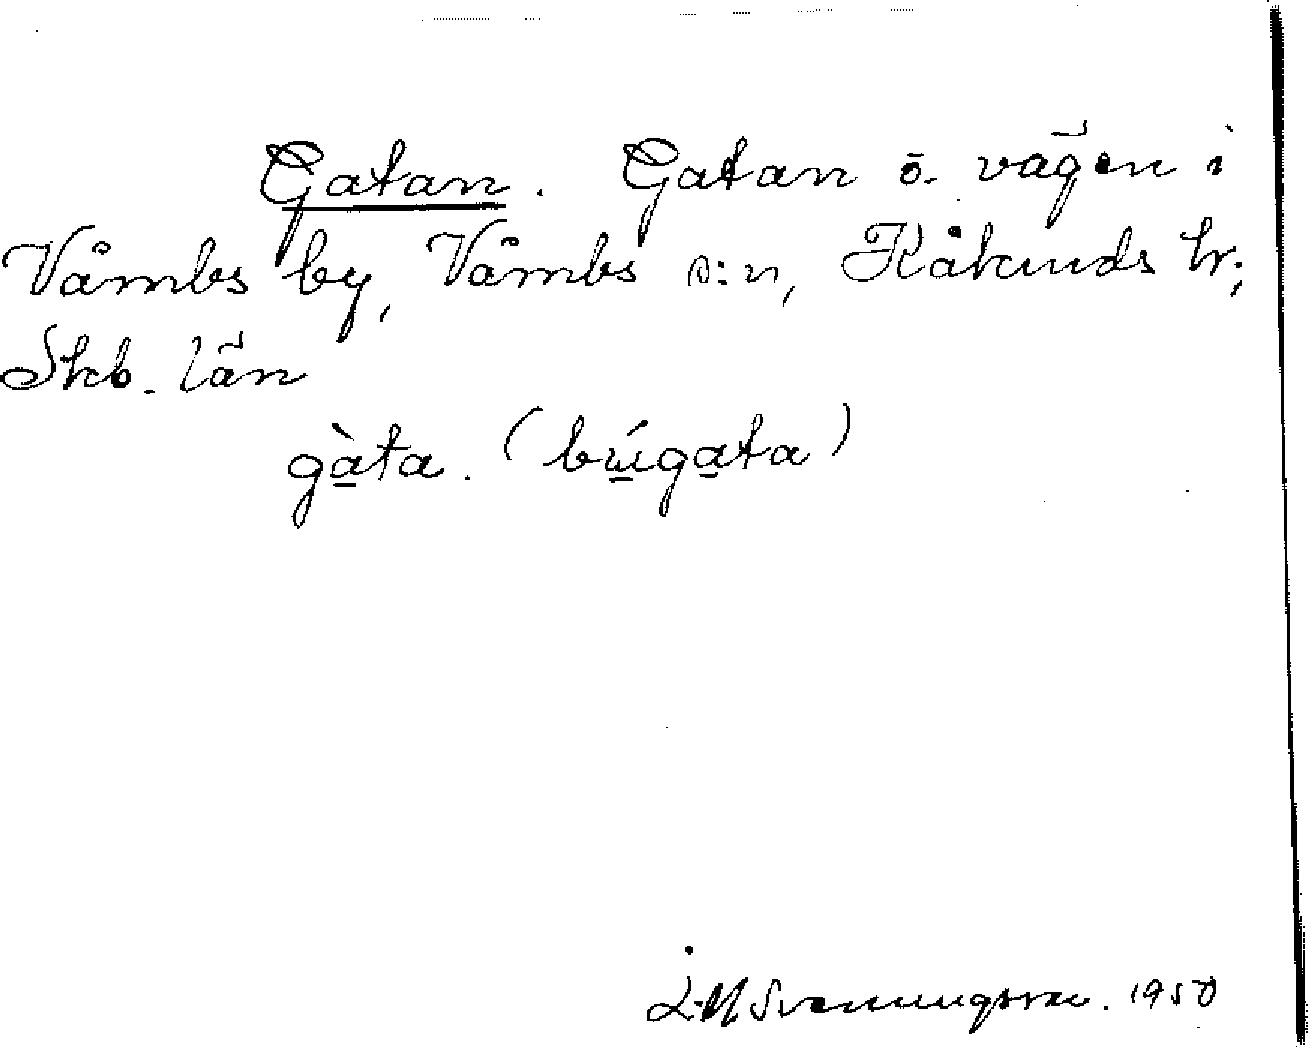 Gatan. Gatan ö. vägen i
Våmbs by, Våmbs s:n, Kåkinds hr;
Skb. län
gàta. (búgata)
Svenningsson. 1950